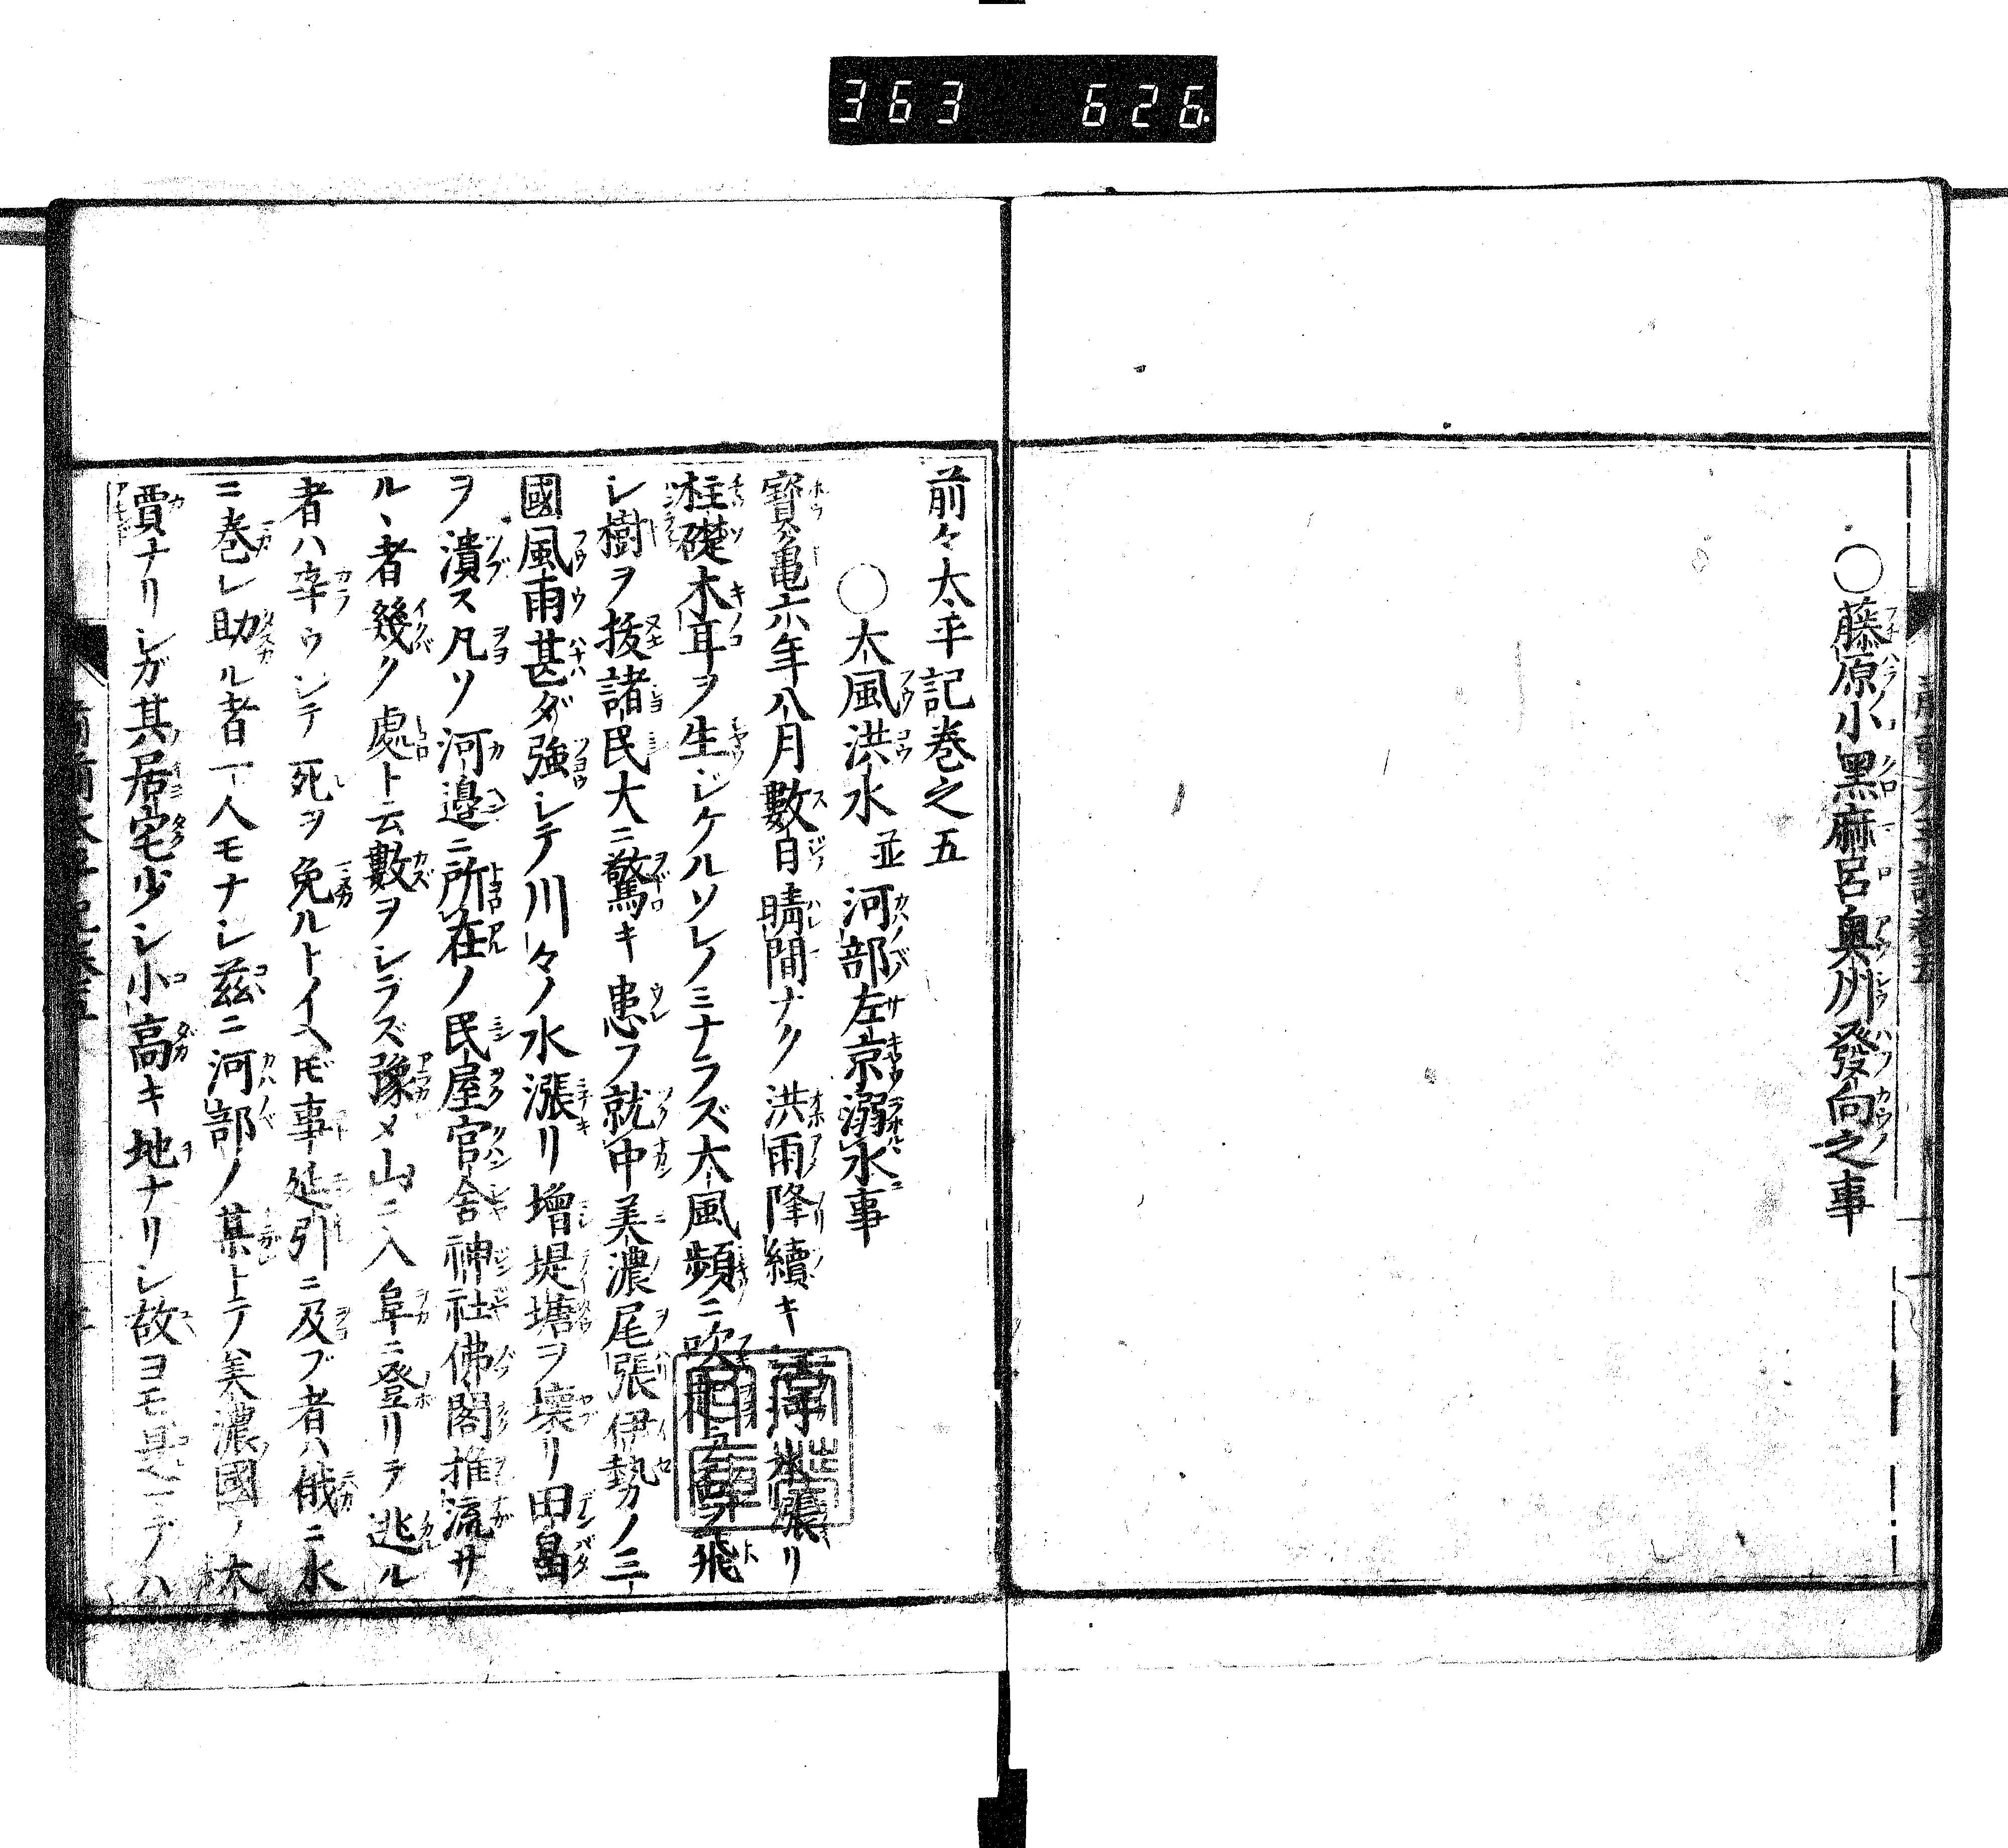 363 626
○藤原小黑麻呂奥州發向之事
前々太平記巻之五
○大風洪水並河部左京溺水事
寳亀六年八月數日晴間ナク洪雨降續キ 水漲リ
柱礎木耳ヲ生ジケルソレノミナラズ大風頻ニ吹 飛
シ樹ヲ抜諸民大ニ驚キ患フ就中美濃尾張伊勢ノ三
國風雨甚ダ強シテ川々ノ水漲リ増堤塘ヲ壊リ田畠
ヲ潰ス凡ソ河邉ニ所在ノ民屋官舎神社佛閣推流サ
ルヽ者幾ク處ト云數ヲシラズ豫メ山ニ入阜ニ登リテ逃ル
者ハ辛ウシテ死ヲ免ルトイヘ𪜈事延引ニ及ブ者ハ俄ニ水
ニ巻レ助ル者一人モナシ茲ニ河部ノ某トテ美濃國ノ大
賈ナリシガ其居宅少シ小高キ地ナリシ故ヨモ是マデハ